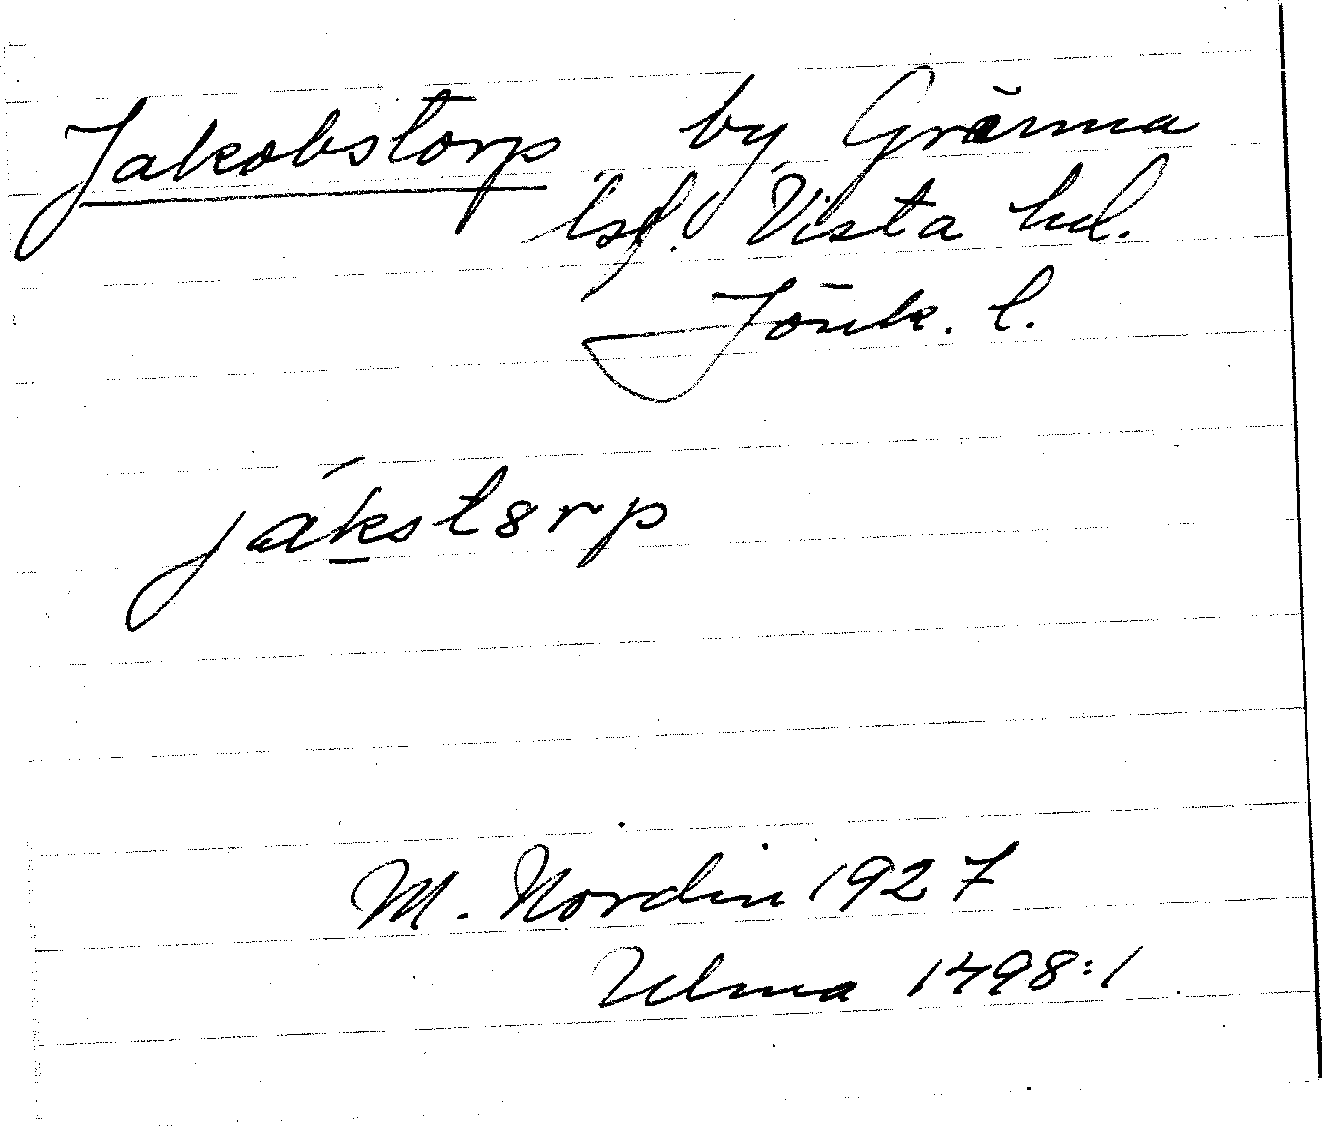 Jakobstorp by Gränna
lsf. Vista hd.
Jönk. l.
jákstorp
M. Nordin 1927
Ulma 1498:1